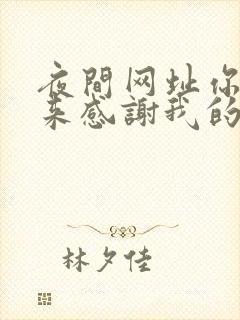 夜間网址你
来感謝我的
林夕佳